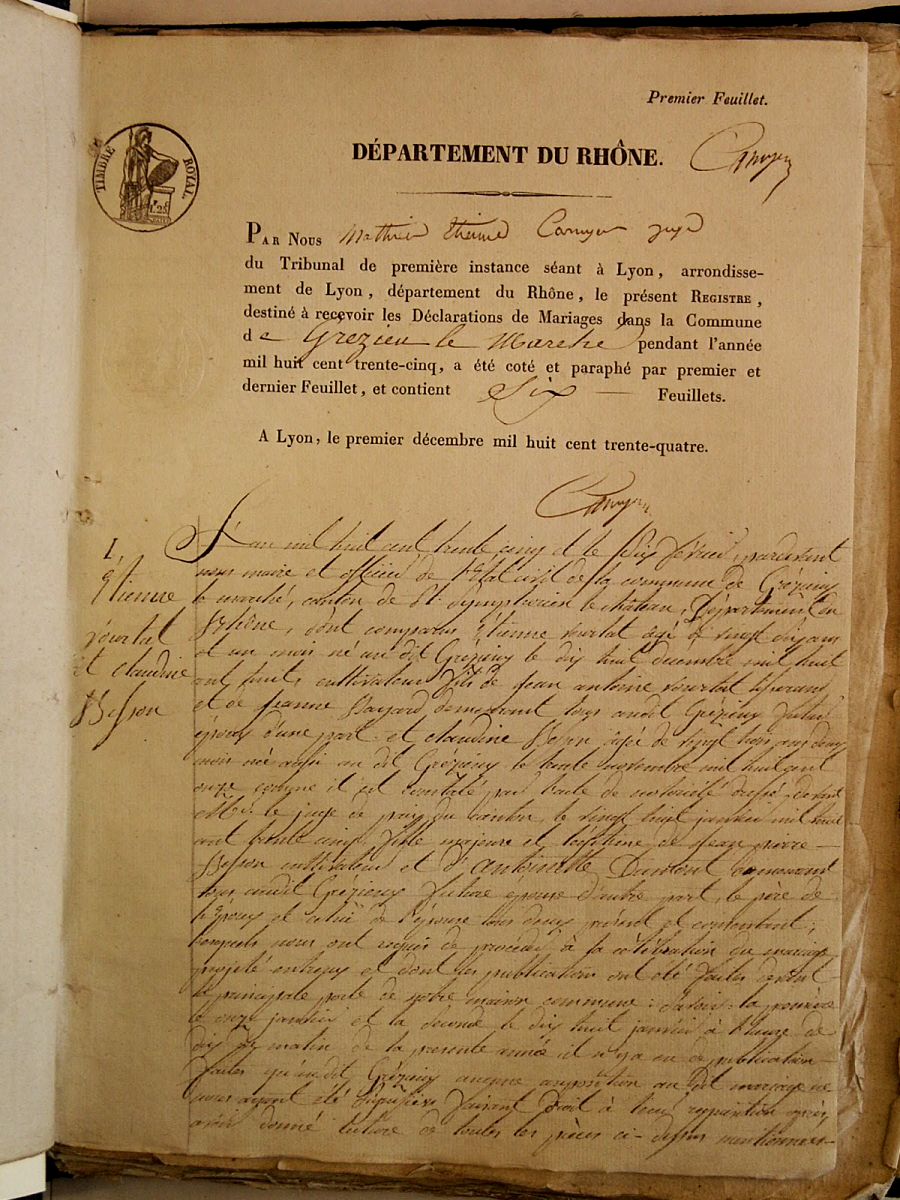 Premier Feuillet.
TIMBRE ROYAL.
DÉPARTEMENT DU RHÔNE.
PAR NOUS Mathieu Etienne juge
du Tribunal de première instance séant à Lyon, arrondisse-
ment de Lyon, département du Rhône, le présent REGISTRE,
destiné à recevoir les Déclarations de Mariages dans la Commune
de Grezieu le Marché pendant l'année
mil huit cent trente-cinq, a été coté et paraphé par premier et
dernier Feuillet, et contient Six Feuillets.
A Lyon, le premier décembre mil huit cent trente-quatre.
1.
Etienne
et claudine
L'an mil huit cent trente cinq et le Six février, pardevant
nous maire et officier de l'Etat civil de la commune de Grézieu
le marché, canton de St. Symphorien le château, Département du
Rhône, sont comparus Etienne âgé de vingt six ans
et un mois né au dit Grézieu le dix huit decembre mil huit
cent huit, cultivateur fils de Jean antoine
et de Jeanne demeurant tous audit Grézieu futur
époux d'une part. et claudine âgée de vingt trois ans deux
mois née aussi au dit Grézieu le trente novembre mil huit cent
onze comme il est constaté par l'acte de notoriété dressé devant
Mr. le juge de paix du canton, le vingt huit janvier mil huit
cent trente cinq fille majeure et légitime de Jean pierre
cultivateur et d'antoinette demeurant
tous audit Grézieu future epouse d'autre part, le père de
l'époux et celui de l'épouse tous deux présent et consentant;
lesquels nous ont requis de procéder à la célébration du mariage
projeté entreux et dont les publication ont été faites devant
la principale porte de notre maison commune: Savoir: la première
le onze janvier et la Seconde le dix huit janvier à l'heure de
dix du matin de la presente année il n'y a eu de publication
faites qu'audit Grézieu aucune opposition au Dit mariage ne
nous ayant été Signifiée faisant Droit à leur réquisition après
avoir donné lecture de toutes les pièces ci-dessus mentionnées